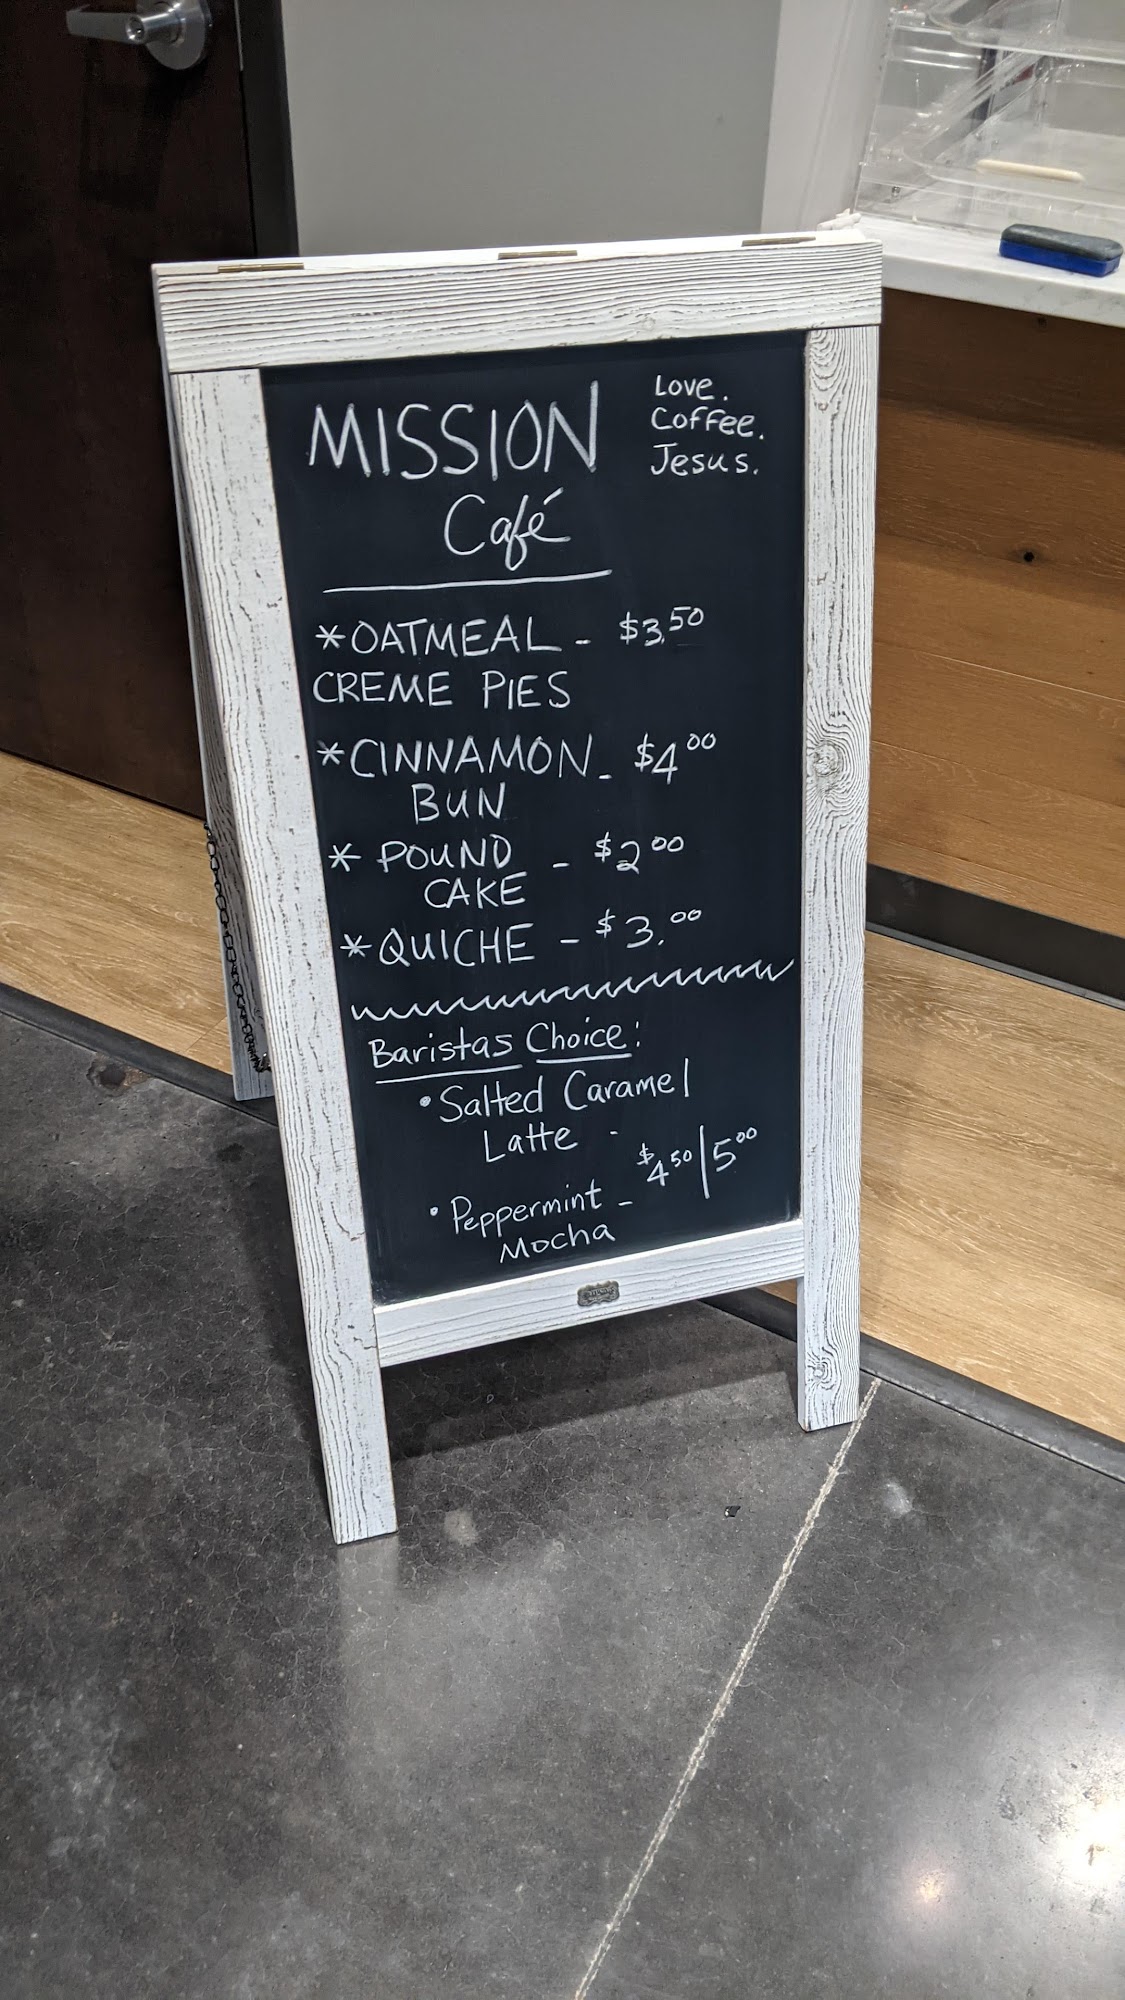 MISSION
Café
Love.
Coffee.
Jesus.
*OATMEAL - $3.50
CREME PIES
*CINNAMON - $4 00
BUN
* POUND - $2 00
CAKE
*QUICHE - $3.00
Baristas Choice:
• Salted Caramel
Latte -
$4 50/5 00
• Peppermint -
Mocha